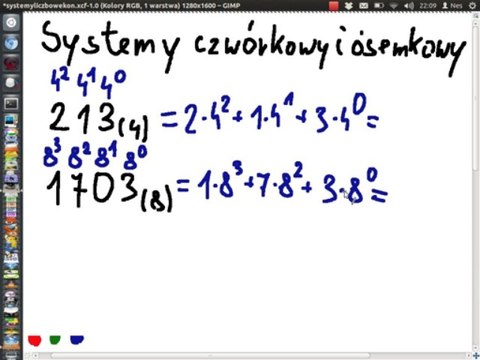 *systemyliczbowekon.xcf-1.0 (Kolory RGB, 1 warstwa) 1280x1600 – GIMP
22:09
Nes
Systemy czwórkowy i ósemkowy
4² 4¹ 4⁰
213(4) = 2·4² + 1·4¹ + 3·4⁰ =
8³ 8² 8¹ 8⁰
1703(8) = 1·8³ + 7·8² + 3·8⁰ =